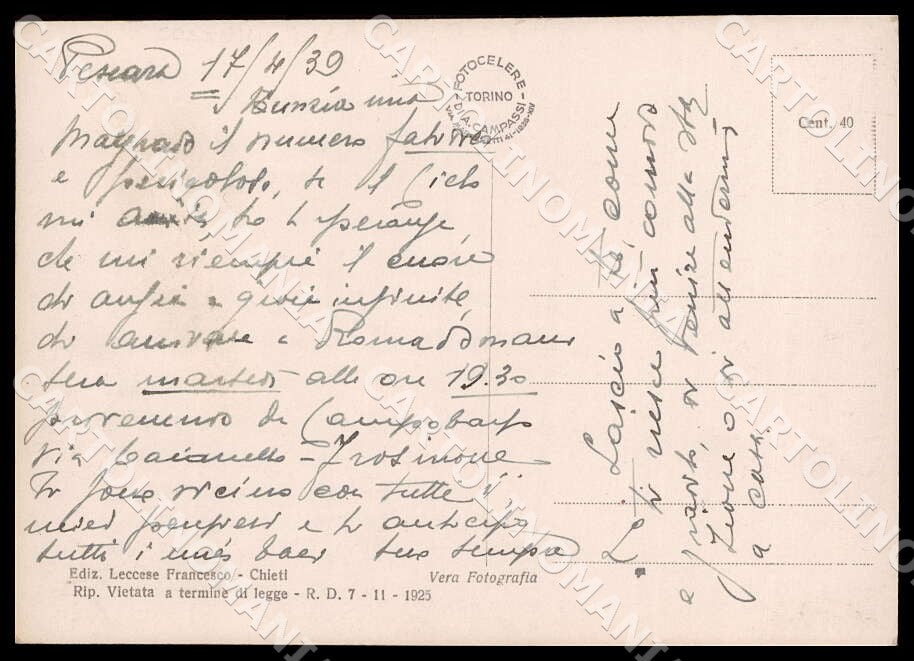 Pescara 17/4/39
mia
il numero
e pericoloso, se il Cielo
mi ho speranze
che mi riempie il cuore
di ansia e gioia infinite,
di arrivare a Roma domani
sera martedì alle ore 19.30
provenienza da Campobasso
via Caianello - Frosinone
Ti sono vicino con tutti i
miei pensieri e ti anticipo
tutti i miei baci tuo sempre
L.
Lascio a te come
ti riesce più comodo
e gradito, di venire alla sta
zione o di attendermi
a casa.
FOTOCELERE
TORINO
DI A. CAMPASSI
Cent. 40
Ediz. Leccese Francesco - Chieti
Vera Fotografia
Rip. Vietata a termine di legge - R. D. 7 - 11 - 1925
CARTOLINOMANIA